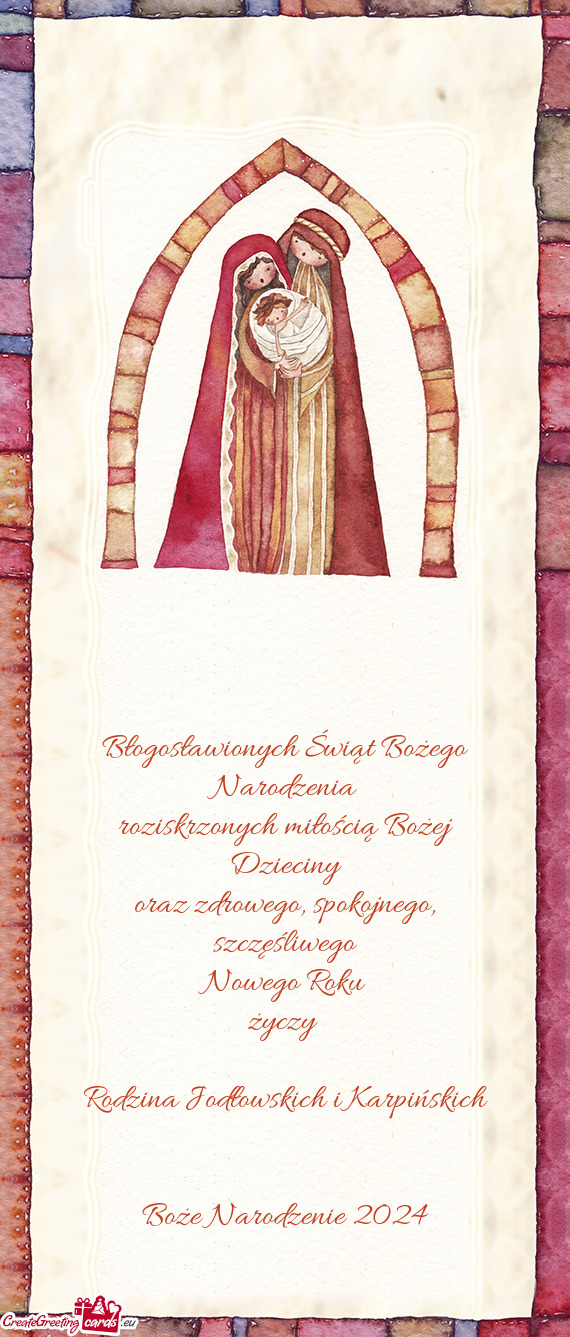 Błogosławionych Świąt Bożego
Narodzenia
roziskrzonych miłością Bożej
Dzieciny
oraz zdrowego, spokojnego,
szczęśliwego
Nowego Roku
życzy
Rodzina Jodłowskich i Karpińskich
Boże Narodzenie 2024
CreateGreeting cards .eu